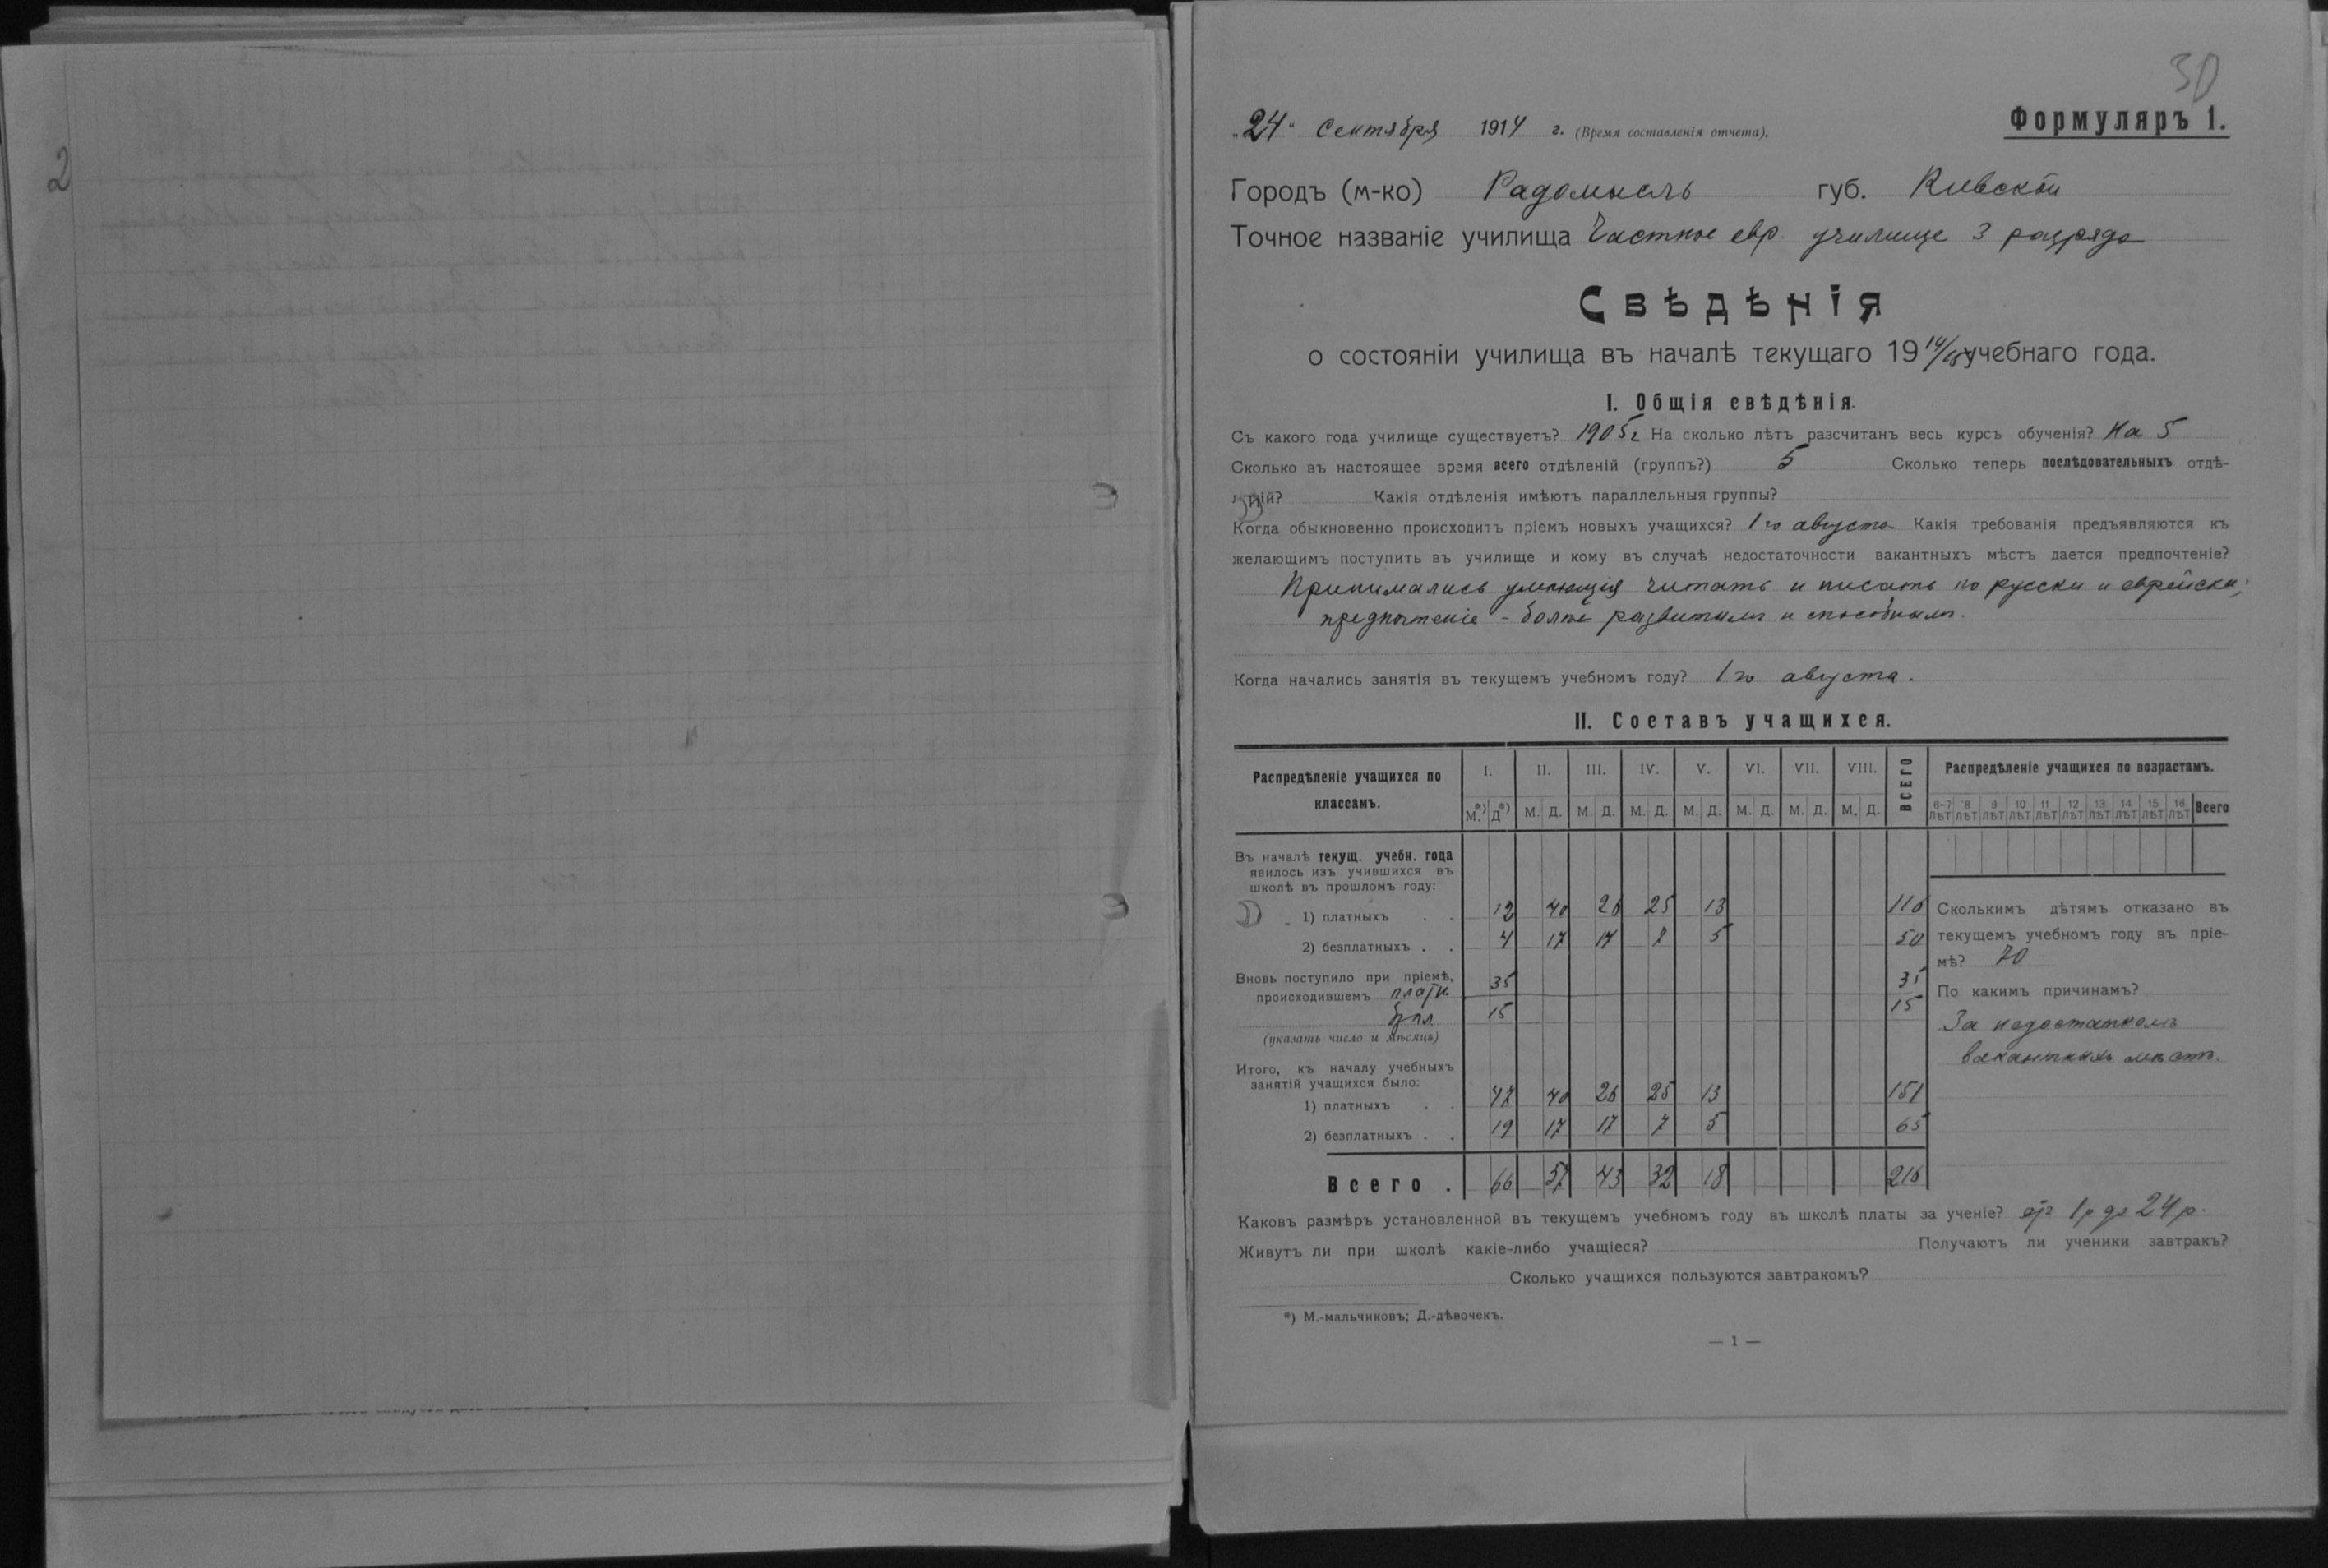 2
30
Формуляръ 1.
„24“ Сентября 1914 г. (Время составленія отчета).
Городъ (м-ко) Радомысль губ. Кіевской
Точное названіе училища Частное евр. училище 3 разряда
Свѣдѣнія
о состояніи училища въ началѣ текущаго 1914/15 учебнаго года.
I. Общія свѣдѣнія.
Съ какого года училище существуетъ? 1905 г. На сколько лѣтъ разсчитанъ весь курсъ обученія? На 5
Сколько въ настоящее время всего отдѣленій (группъ?) 5 Сколько теперь послѣдовательныхъ отдѣ-
леній? Какія отдѣленія имѣютъ параллельныя группы?
Когда обыкновенно происходитъ пріемъ новыхъ учащихся? 1го августа Какія требованія предъявляются къ
желающимъ поступить въ училище и кому въ случаѣ недостаточности вакантныхъ мѣстъ дается предпочтеніе?
Принимались умѣющія читать и писать по русски и еврейски;
предпочтеніе - болѣе развитымъ и способнымъ.
Когда начались занятія въ текущемъ учебномъ году? 1го августа.
II. Составъ учащихся.
Распредѣленіе учащихся по классамъ. I. II. III. IV. V. VI. VII. VIII. ВСЕГО Распредѣленіе учащихся по возрастамъ.
М.*) Д*) М. Д. М. Д. М. Д. М. Д. М. Д. М. Д. М. Д. 6-7 лѣт 8 лѣт 9 лѣт 10 лѣт 11 лѣт 12 лѣт 13 лѣт 14 лѣт 15 лѣт 16 лѣт Всего
Въ началѣ текущ. учебн. года
явилось изъ учившихся въ
школѣ въ прошломъ году:
1) платныхъ . . 12 40 26 25 13 116
2) безплатныхъ . . 4 17 17 7 5 50
Вновь поступило при пріемѣ,
происходившемъ платн. 35 35
бпл 15 15
(указать число и мѣсяцъ)
Итого, къ началу учебныхъ
занятій учащихся было:
1) платныхъ . . 47 40 26 25 13 151
2) безплатныхъ . . 19 17 17 7 5 65
Всего . 66 57 43 32 18 216
Сколькимъ дѣтямъ отказано въ
текущемъ учебномъ году въ пріе-
мѣ? 70
По какимъ причинамъ?
За недостаткомъ
вакантныхъ мѣстъ.
Каковъ размѣръ установленной въ текущемъ учебномъ году въ школѣ платы за ученіе? от 1 р до 24 р.
Живутъ ли при школѣ какіе-либо учащіеся? Получаютъ ли ученики завтракъ?
Сколько учащихся пользуются завтракомъ?
*) М.-мальчиковъ; Д.-дѣвочекъ.
— 1 —